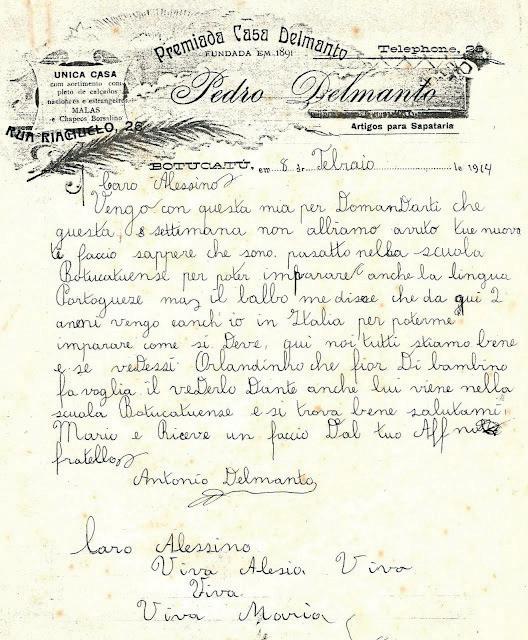 Premiada Casa Delmanto
FUNDADA EM 1891
Telephone, 26
UNICA CASA
com sortimento com-
pleto de calçados
nacionaes e estrangeiros
MALAS
e Chapeos Borsalino
Pedro Delmanto
RUA RIACHUELO, 26
Artigos para Sapataria
BOTUCATÚ, em 8 de Febraio de 1914
Caro Alessino
Vengo con questa mia per DomanDarti che
questa settimana non abbiamo avuto tue nuove
te faccio sappere che sono pasatto nella scuola
Botucatuense per poter imparare anche la lingua
Portoguese ma il babbo me disse che da qui 2
anni vengo anch'io in Italia per poterme
imparare come si Deve, qui noi tutti stiamo bene
e se veDessi Orlandinho che fior Di bambino
fa voglia il veDerlo Dante anche lui viene nella
scuola Botucatuense e si trova bene salutami
Mario e Riceve un faccio Dal tuo Aff
fratello
Antonio Delmanto
Caro Alessino
Viva Alesia Viva
Viva
Viva Maria